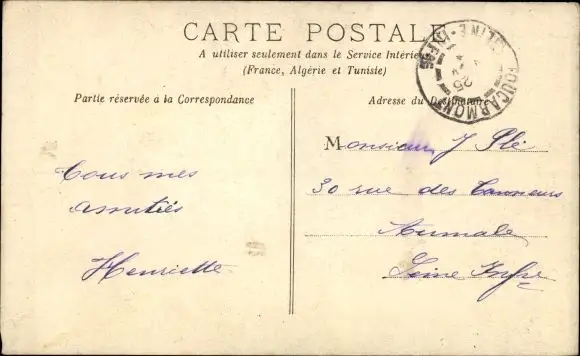 CARTE POSTALE
A utiliser seulement dans le Service Intérieur
(France, Algérie et Tunisie)
Partie réservée à la Correspondance
Adresse du Destinataire
FOUCARMONT
SEINE-INFRE
25
Tous mes
amitiés
Henriette
Monsieur J Plé
30 rue des Tanneurs
Aumale
Seine Infre